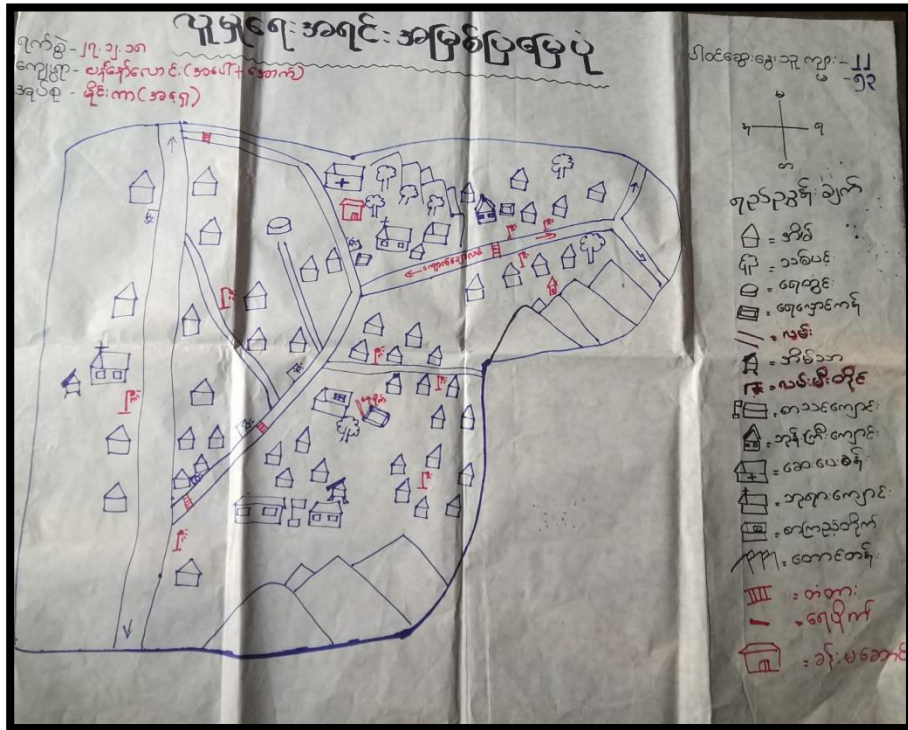 လူမှုရေးအရင်းအမြစ်ပြမြေပုံ
ရက်စွဲ - ၂၇.၁၂.၁၈
ကျေးရွာ - (အပေါ်+အောက်)
အုပ်စု - နိုင်းကာ(အရှေ့)
ပါဝင်ဆွေးနွေးသူ ကျား - ၁၂
မ
တ
ရည်ညွှန်းချက်
= အိမ်
= သစ်ပင်
= ရေတွင်း
= ရေလှောင်ကန်
= လမ်း
= အိမ်သာ
= လမ်းမီးတိုင်
= စာသင်ကျောင်း
= ဘုန်းကြီးကျောင်း
= ဆေးပေးခန်း
= ဘုရားကျောင်း
= စာကြည့်တိုက်
= တောင်တန်း
= တံတား
= ရေပိုက်
= ခန်းမဆောင်